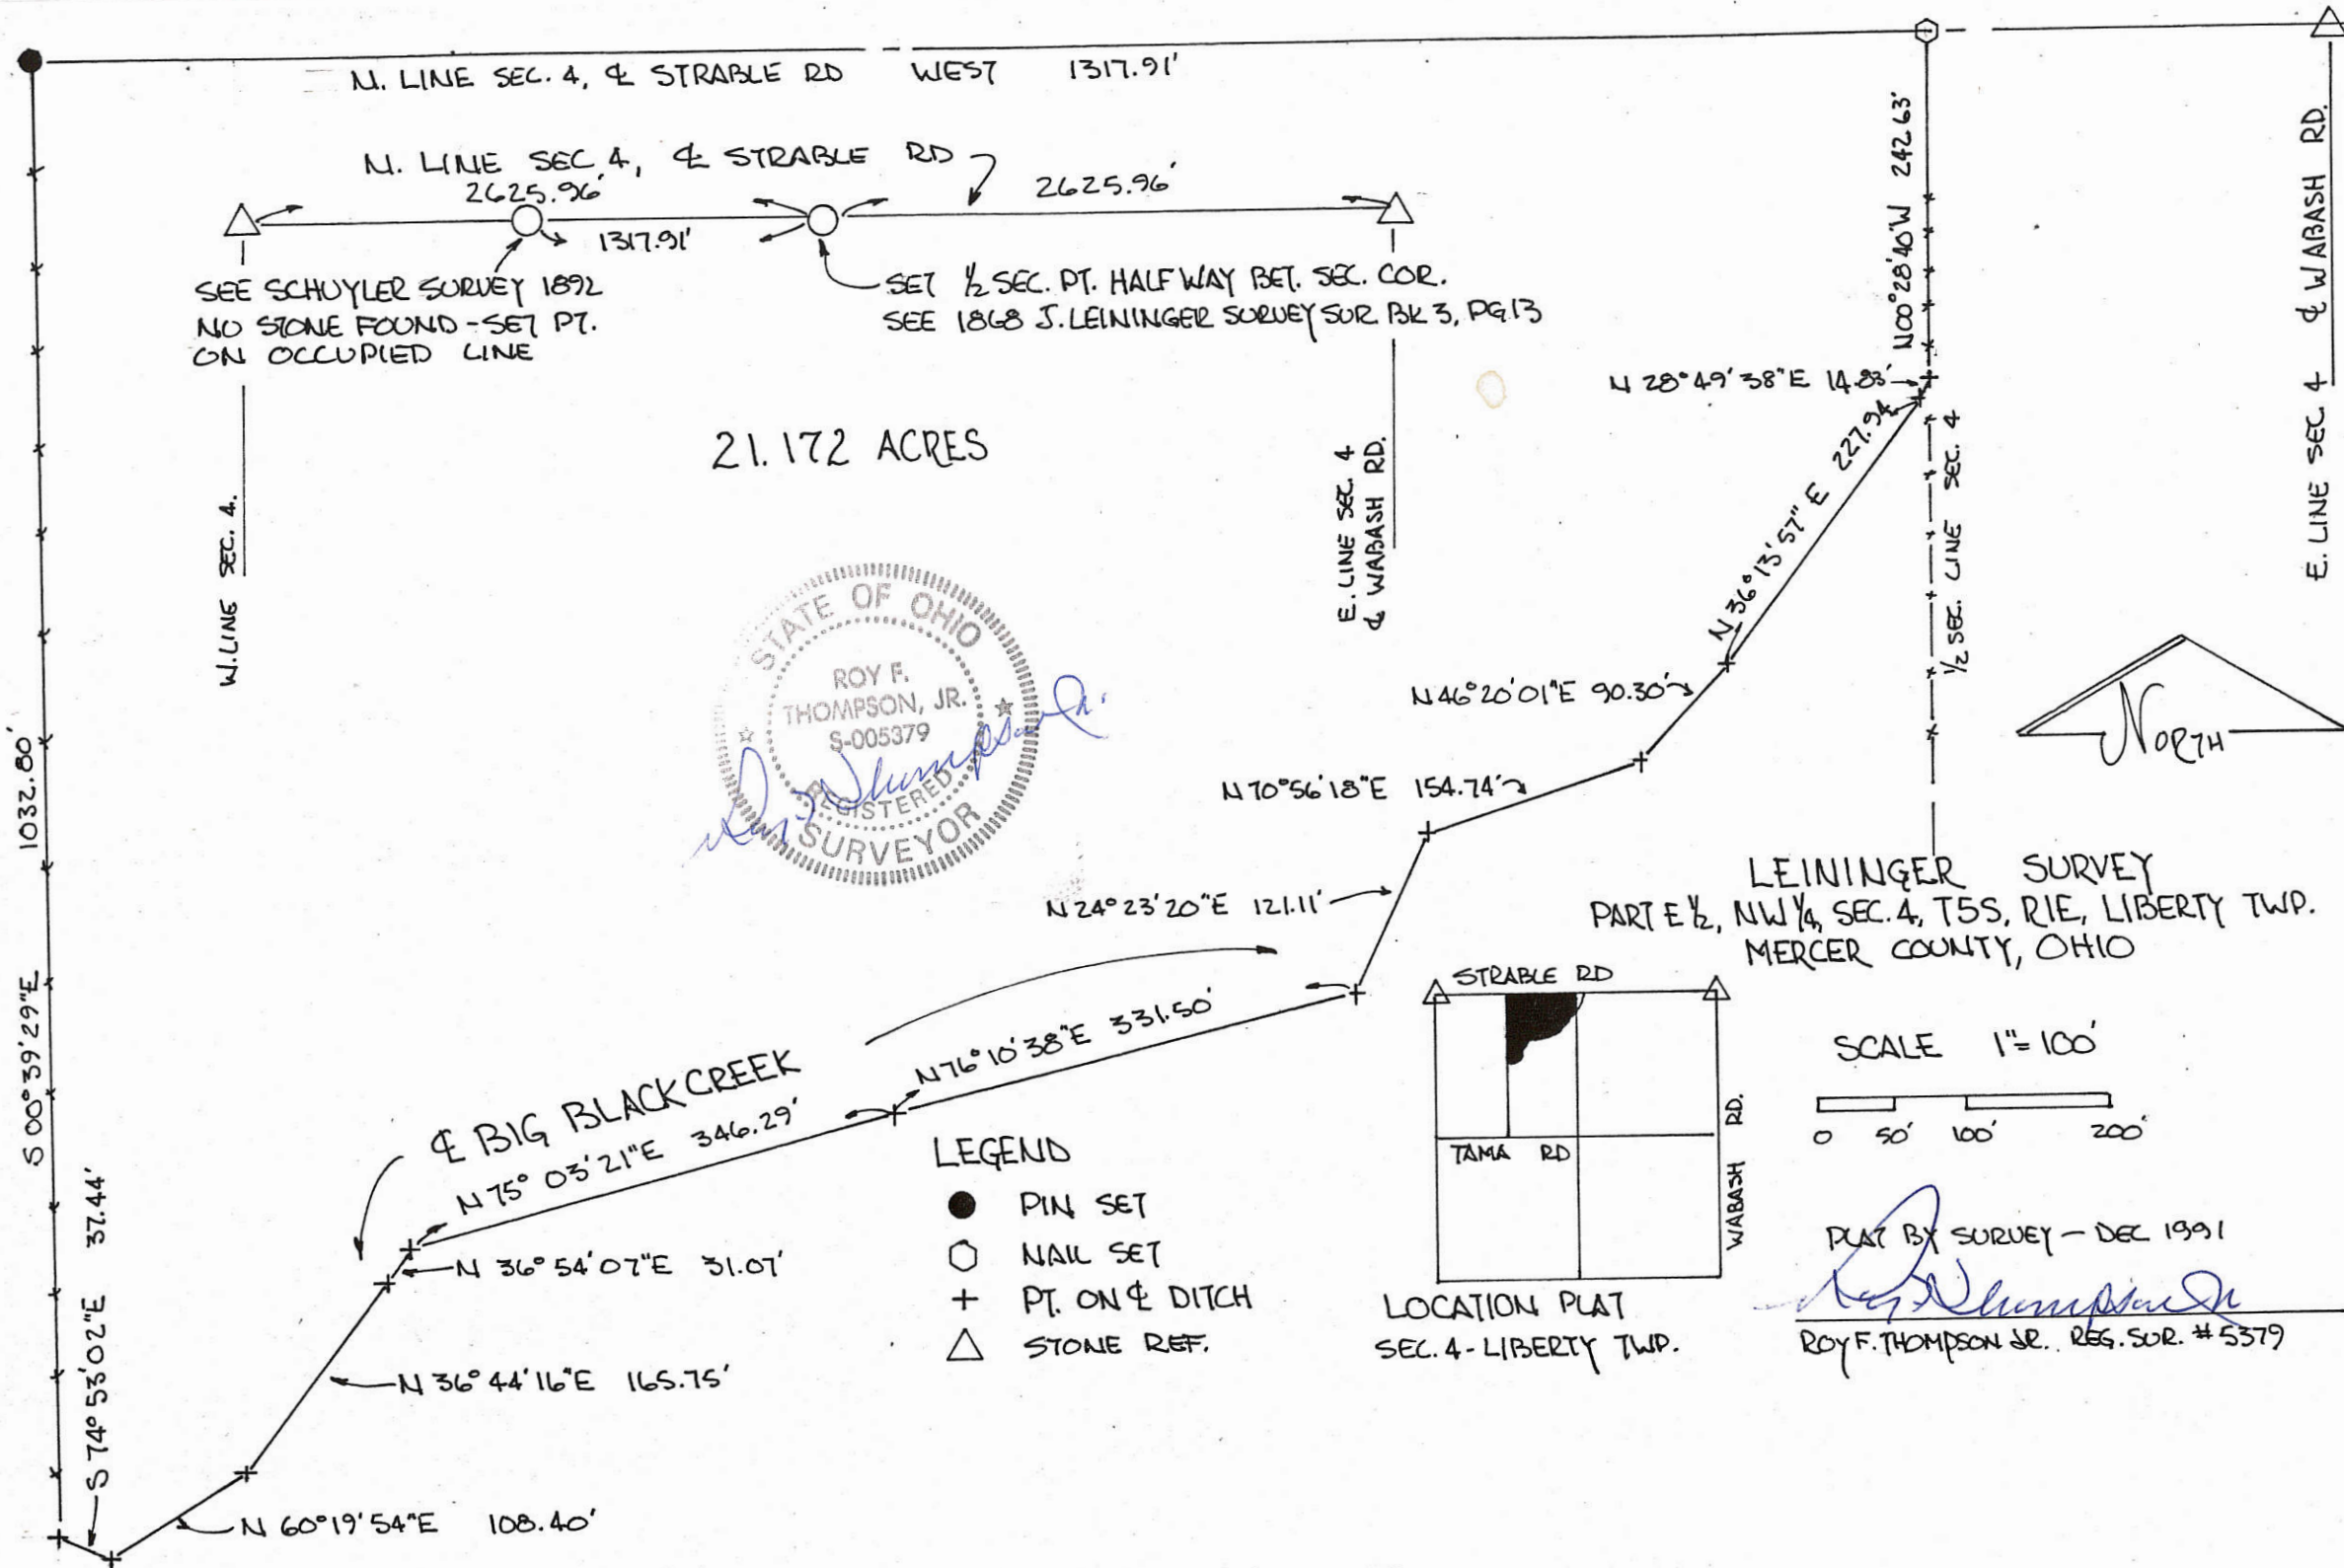 N. LINE SEC. 4, ℄ STRABLE RD WEST 1317.91'
N. LINE SEC. 4, ℄ STRABLE RD
2625.96'
2625.96'
1317.91'
SEE SCHUYLER SURVEY 1892
NO STONE FOUND - SET PT.
ON OCCUPIED LINE
SET ½ SEC. PT. HALF WAY BET. SEC. COR.
SEE 1868 J. LEININGER SURVEY SUR. BK 3, PG. 13
W. LINE SEC. 4.
E. LINE SEC. 4
℄ WABASH RD.
N00°28'40"W 242.63'
E. LINE SEC 4 ℄ WABASH RD.
N 28°49'38"E 14.83'
N 36°13'57"E 227.94
½ SEC. LINE SEC. 4
21.172 ACRES
STATE OF OHIO
ROY F.
THOMPSON, JR.
S-005379
REGISTERED
SURVEYOR
N 46°20'01"E 90.30'
NORTH
N 70°56'18"E 154.74'
N 24°23'20"E 121.11'
S 00°39'29"E 1032.80'
LEININGER SURVEY
PART E ½, NW ¼, SEC. 4, T5S, R1E, LIBERTY TWP.
MERCER COUNTY, OHIO
N 76°10'38"E 331.50'
℄ BIG BLACK CREEK
N 75°03'21"E 346.29'
N 36°54'07"E 31.07'
N 36°44'16"E 165.75'
S 74°53'02"E 37.44'
N 60°19'54"E 108.40'
LEGEND
PIN SET
NAIL SET
PT. ON ℄ DITCH
STONE REF.
STRABLE RD
TAMA RD
WABASH RD.
LOCATION PLAT
SEC. 4 - LIBERTY TWP.
SCALE 1"=100'
0 50' 100' 200'
PLAT BY SURVEY - DEC 1991
Roy F. Thompson Jr.
ROY F. THOMPSON JR. REG. SUR. #5379